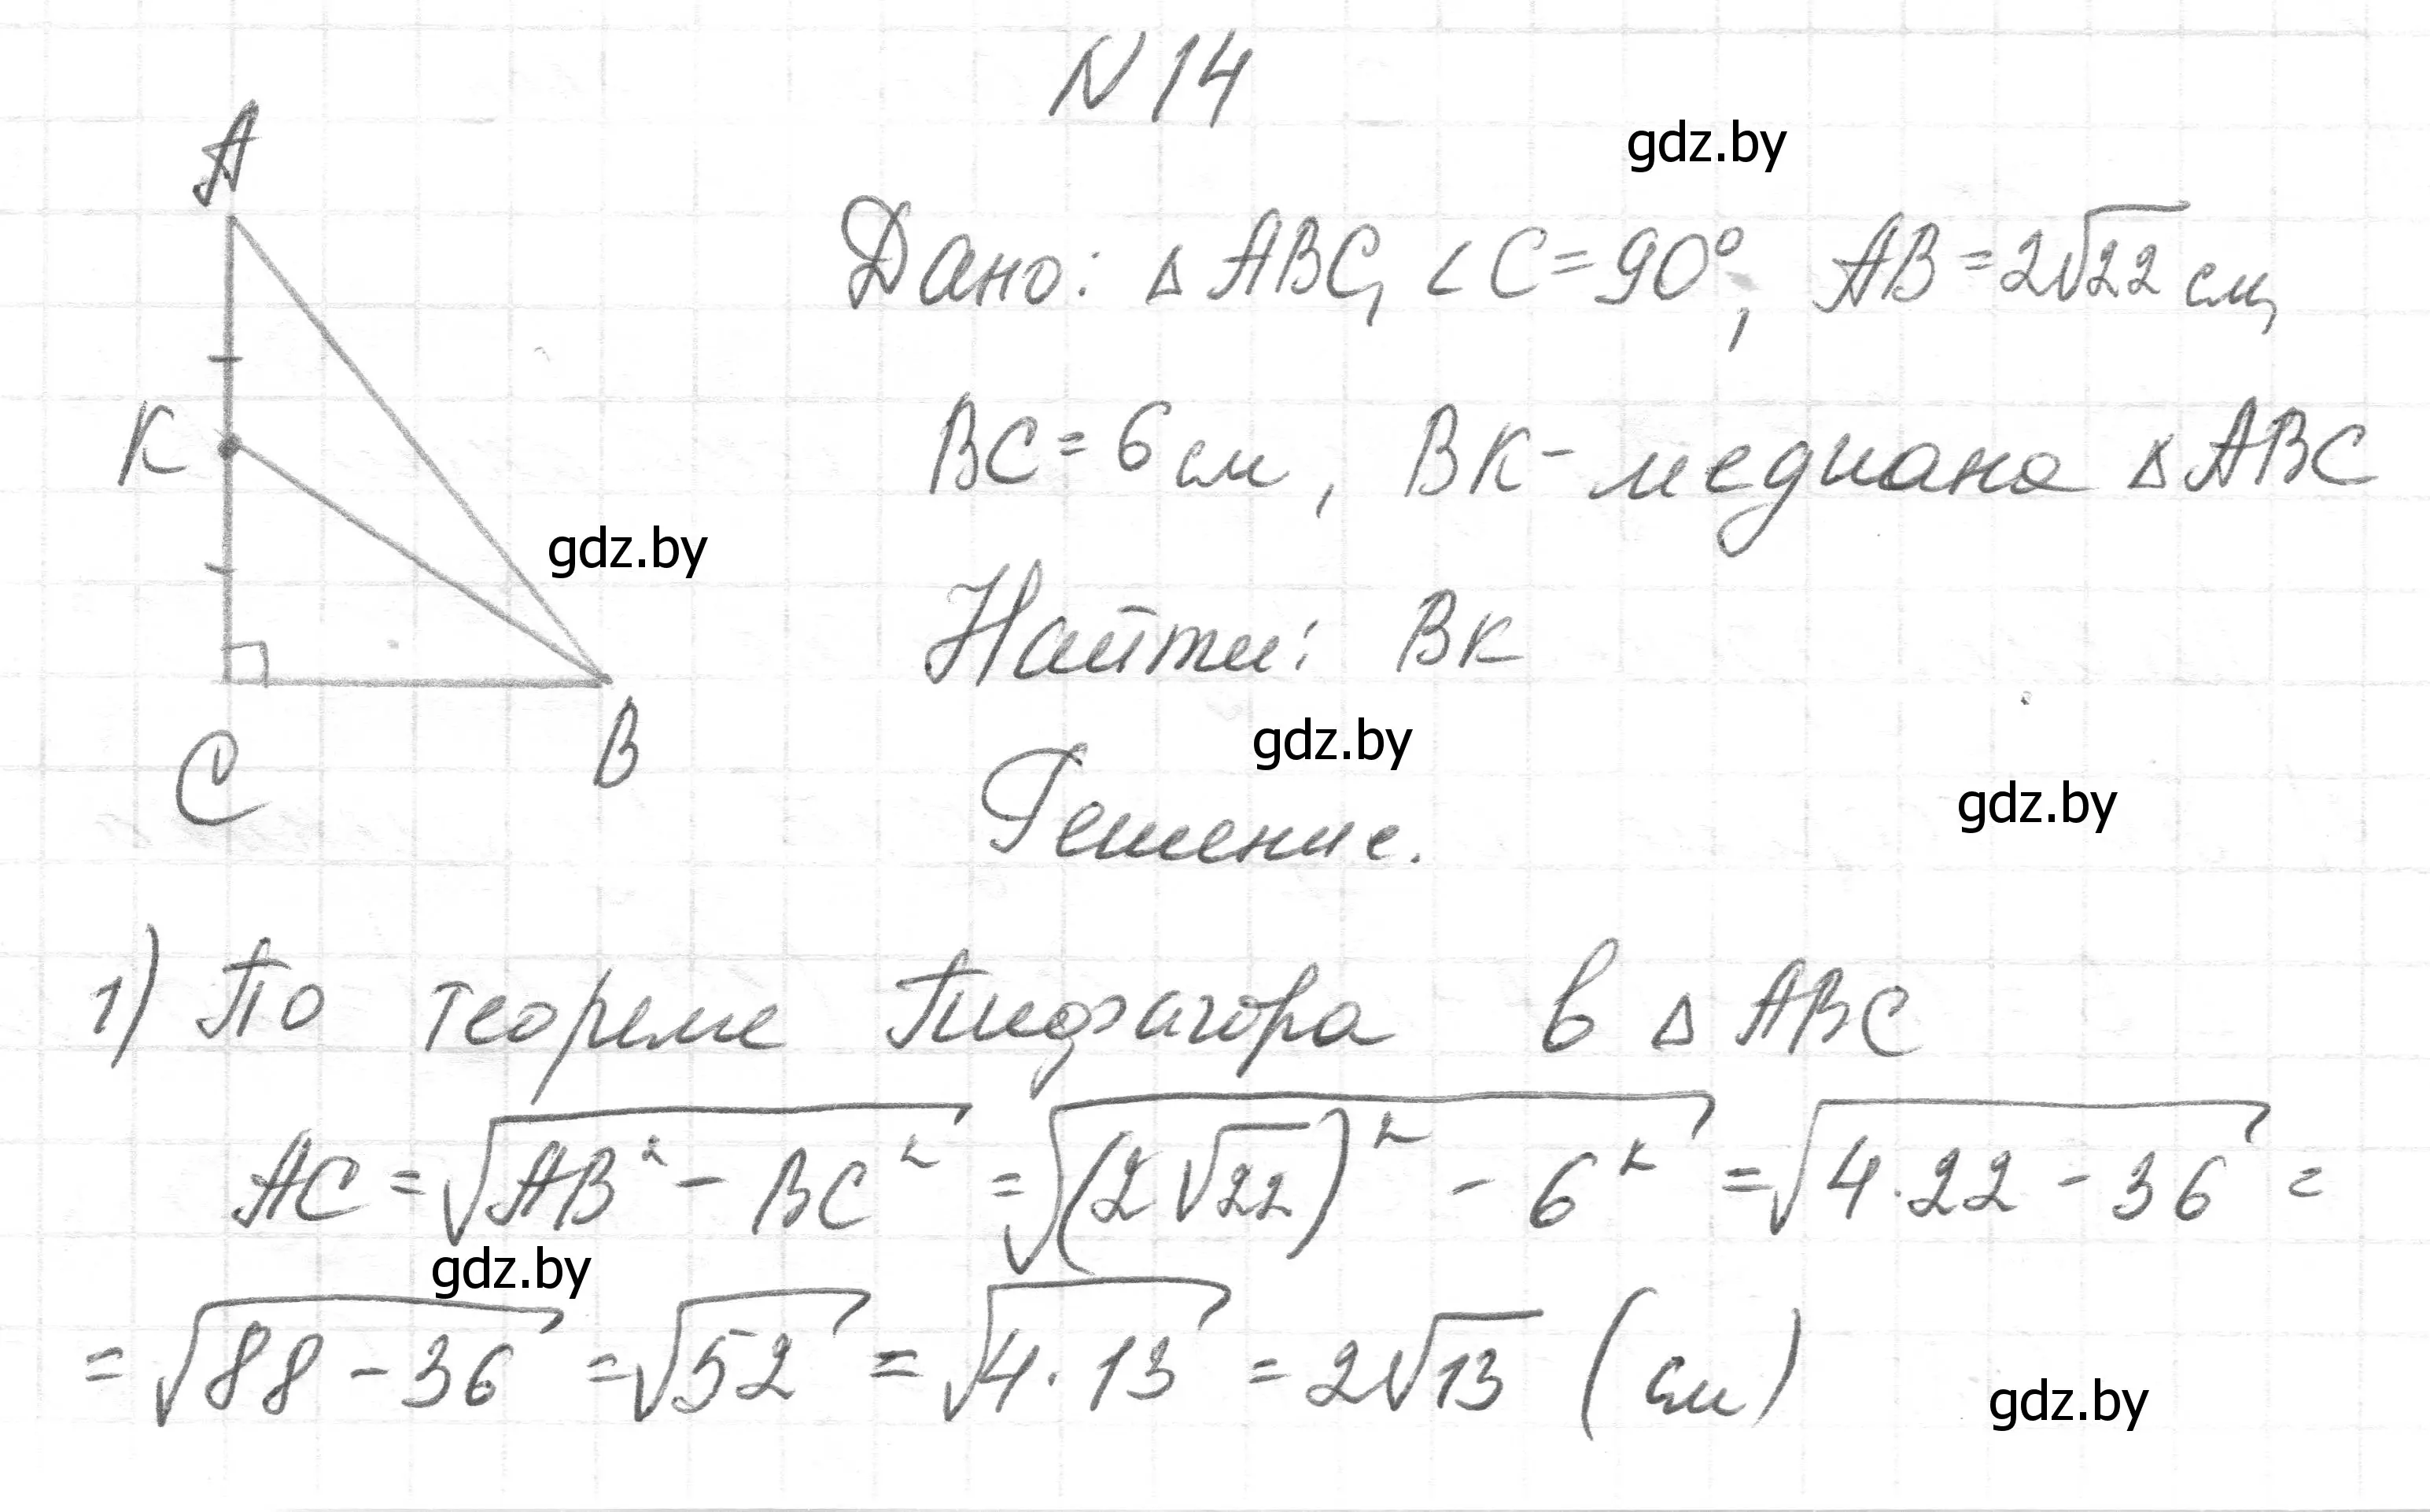 N 14
gdz.by
A
Дано: △ ABC, <C=90°, AB=2√22 см,
K
BC=6 см, BK- медиана △ ABC
gdz.by
Найти: BK
C
B
gdz.by
Решение.
gdz.by
1) По теореме Пифагора в △ ABC
AC=√(AB²-BC²) =√((2√22)²-6²) =√(4·22-36) =
gdz.by
=√(88-36) =√52 =√(4·13) =2√13 (см)
gdz.by